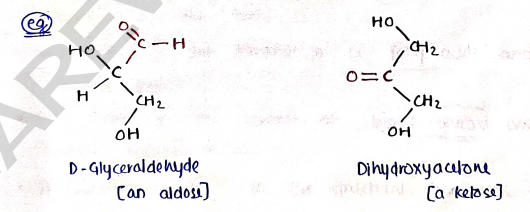 eg.
O
HO C — H
C
H CH2
OH
HO
CH2
O = C
CH2
OH
D-Glyceraldehyde
[an aldose]
Dihydroxyacetone
[a ketose]